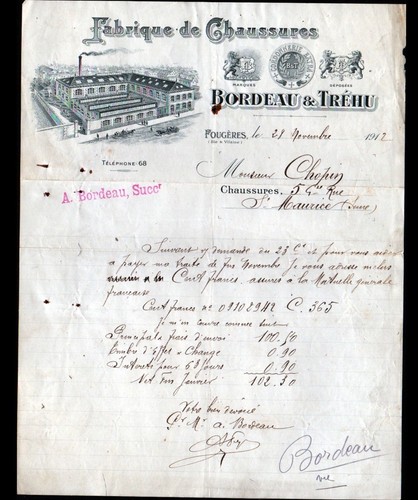 Fabrique de Chaussures
MARQUES DÉPOSÉES
BORDEAU & TRÉHU
FOUGÈRES, le 29 Novembre 1912
(Ille & Vilaine)
TÉLÉPHONE 68
A. Bordeau, Succr
Monsieur Chopin
Chaussures, 5 Gde Rue
St Maurice (Seine)
Suivant votre demande du 23 Ct et pour vous aider
à payer ma traite de fin Novembre Je vous adresse inclus
Cent francs, assurés à la Mutuelle générale
française
Cent francs no 09108942 C. 365
Principal & frais d'envoi 100.50
Timbre d'Effet & Change 0.90
Intérêts pour 6 jours 0.90
Net fin Janvier 102.30
Votre bien dévoué
Pr Mr A. Bordeau
Bordeau